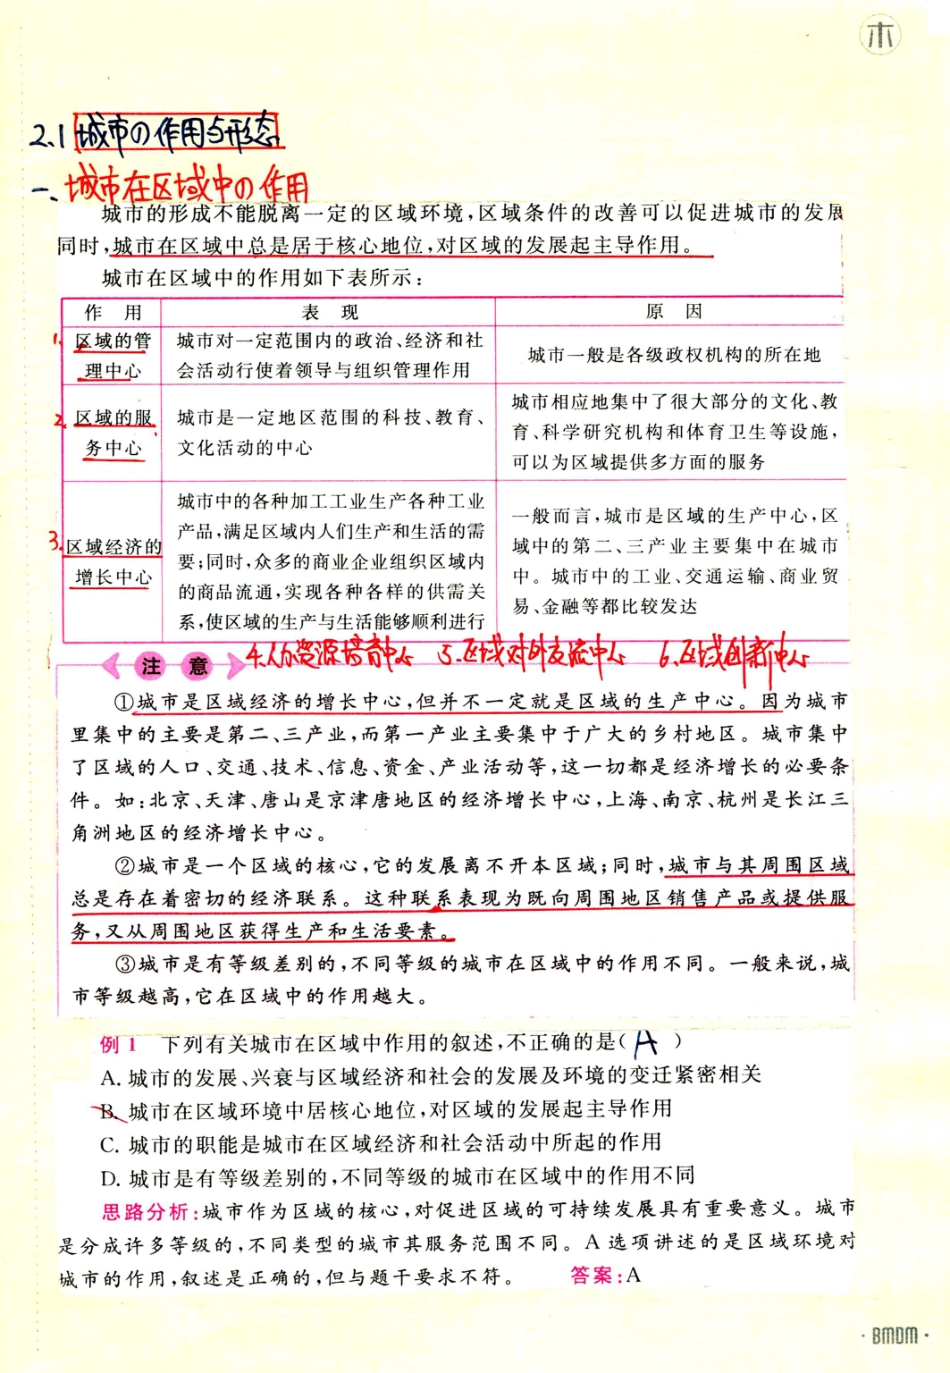 木
2.1 城市の作用与形态
一、城市在区域中の作用
城市的形成不能脱离一定的区域环境,区域条件的改善可以促进城市的发展
同时,城市在区域中总是居于核心地位,对区域的发展起主导作用。
城市在区域中的作用如下表所示:
作 用 表 现 原 因
1. 区域的管
理中心
城市对一定范围内的政治、经济和社
会活动行使着领导与组织管理作用
城市一般是各级政权机构的所在地
2. 区域的服
务中心
城市是一定地区范围的科技、教育、
文化活动的中心
城市相应地集中了很大部分的文化、教
育、科学研究机构和体育卫生等设施,
可以为区域提供多方面的服务
3. 区域经济的
增长中心
城市中的各种加工工业生产各种工业
产品,满足区域内人们生产和生活的需
要;同时,众多的商业企业组织区域内
的商品流通,实现各种各样的供需关
系,使区域的生产与生活能够顺利进行
一般而言,城市是区域的生产中心,区
域中的第二、三产业主要集中在城市
中。城市中的工业、交通运输、商业贸
易、金融等都比较发达
4.人力资源培育中心 5.区域对外交流中心 6.区域创新中心
注意
①城市是区域经济的增长中心,但并不一定就是区域的生产中心。因为城市
里集中的主要是第二、三产业,而第一产业主要集中于广大的乡村地区。城市集中
了区域的人口、交通、技术、信息、资金、产业活动等,这一切都是经济增长的必要条
件。如:北京、天津、唐山是京津唐地区的经济增长中心,上海、南京、杭州是长江三
角洲地区的经济增长中心。
②城市是一个区域的核心,它的发展离不开本区域;同时,城市与其周围区域
总是存在着密切的经济联系。这种联系表现为既向周围地区销售产品或提供服
务,又从周围地区获得生产和生活要素。
③城市是有等级差别的,不同等级的城市在区域中的作用不同。一般来说,城
市等级越高,它在区域中的作用越大。
例1 下列有关城市在区域中作用的叙述,不正确的是( A )
A. 城市的发展、兴衰与区域经济和社会的发展及环境的变迁紧密相关
B. 城市在区域环境中居核心地位,对区域的发展起主导作用
C. 城市的职能是城市在区域经济和社会活动中所起的作用
D. 城市是有等级差别的,不同等级的城市在区域中的作用不同
思路分析:城市作为区域的核心,对促进区域的可持续发展具有重要意义。城市
是分成许多等级的,不同类型的城市其服务范围不同。A 选项讲述的是区域环境对
城市的作用,叙述是正确的,但与题干要求不符。 答案:A
·BMDM·